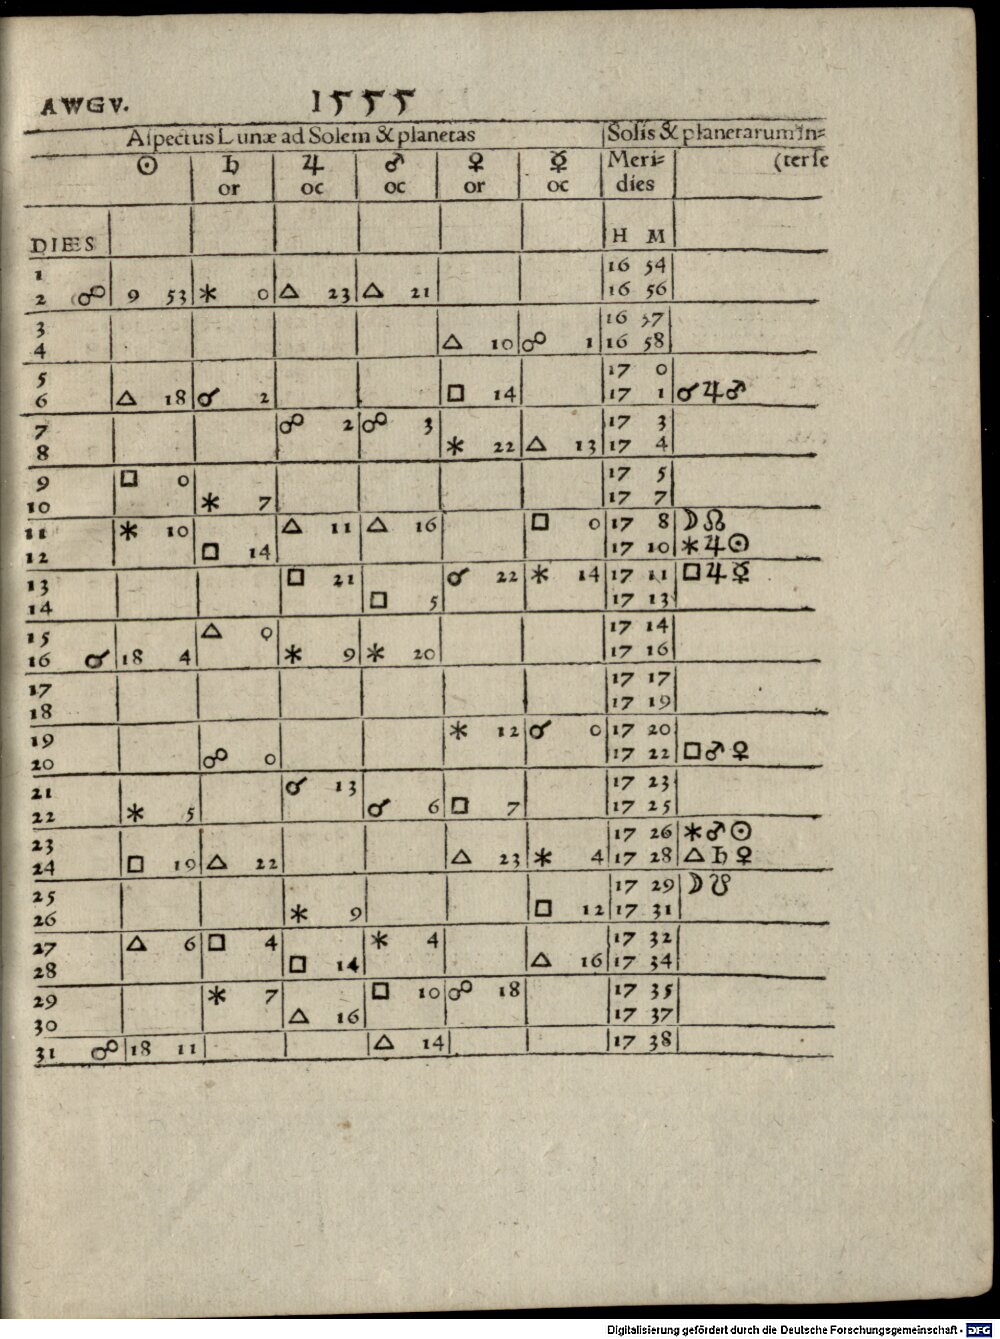 AWGV. 1555
Aspectus Lunæ ad Solem & planetas | Solis & planetarum in=
☉ | ♄ | ♃ | ♂ | ♀ | ☿ | Meri= | (terse
or | oc | oc | or | oc | dies
DIES | H M
1 | 16 54
2 ☍ | 9 53 | ⚹ 0 | △ 23 | △ 21 | 16 56
3 | 16 57
4 | △ 10 | ☍ 1 | 16 58
5 | 17 0
6 | △ 18 | ☌ 2 | □ 14 | 17 1 | ☌ ♃ ♂
7 | ☍ 2 | ☍ 3 | 17 3
8 | ⚹ 22 | △ 13 | 17 4
9 | □ 0 | 17 5
10 | ⚹ 7 | 17 7
11 | ⚹ 10 | △ 11 | △ 16 | □ 0 | 17 8 | ☽ ☊
12 | □ 14 | 17 10 | ⚹ ♃ ☉
13 | □ 21 | ☌ 22 | ⚹ 14 | 17 11 | □ ♃ ☿
14 | □ 5 | 17 13
15 | △ 0 | 17 14
16 ☌ | 18 4 | ⚹ 9 | ⚹ 20 | 17 16
17 | 17 17
18 | 17 19
19 | ⚹ 12 | ☌ 0 | 17 20
20 | ☍ 0 | 17 22 | □ ♂ ♀
21 | ☌ 13 | 17 23
22 | ⚹ 5 | ☌ 6 | □ 7 | 17 25
23 | 17 26 | ⚹ ♂ ☉
24 | □ 19 | △ 22 | △ 23 | ⚹ 4 | 17 28 | △ ♄ ♀
25 | 17 29 | ☽ ☋
26 | ⚹ 9 | □ 12 | 17 31
27 | △ 6 | □ 4 | ⚹ 4 | 17 32
28 | □ 14 | △ 16 | 17 34
29 | ⚹ 7 | □ 10 | ☍ 18 | 17 35
30 | △ 16 | 17 37
31 ☍ | 18 11 | △ 14 | 17 38
Digitalisierung gefördert durch die Deutsche Forschungsgemeinschaft - DFG